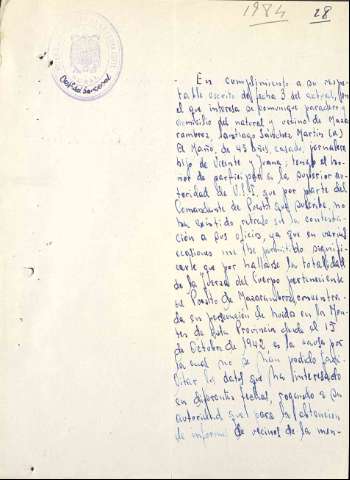 1984 28
En cumplimiento a su respe-
table escrito de fecha 3 del actual, en
el que interesa se comunique paradero y
domicilio del natural y vecino de Maza-
rambroz, Santiago Sánchez Martin (a)
El Maño, de 45 años, casado, jornalero
hijo de Vicente y Juana; tengo el ho-
nor de participar a la superior au-
toridad de V.S.I. que por parte del
Comandante de Puesto que suscribe, no
ha existido retraso en la contesta-
ción a sus oficios, ya que en varias
ocasiones me he permitido signifi-
carle que por hallarse la totalidad
de la fuerza del Cuerpo perteneciente
al Puesto de Mazarambroz, concentra-
da en persecución de huidos en los Mon-
tes de esta Provincia desde el 15
de Octubre de 1942 es la causa por
la cual no se han podido faci-
litar los datos que ha interesado
en diferentes fechas, rogando a su
autoridad que para la obtención
de informes de vecinos de la men-